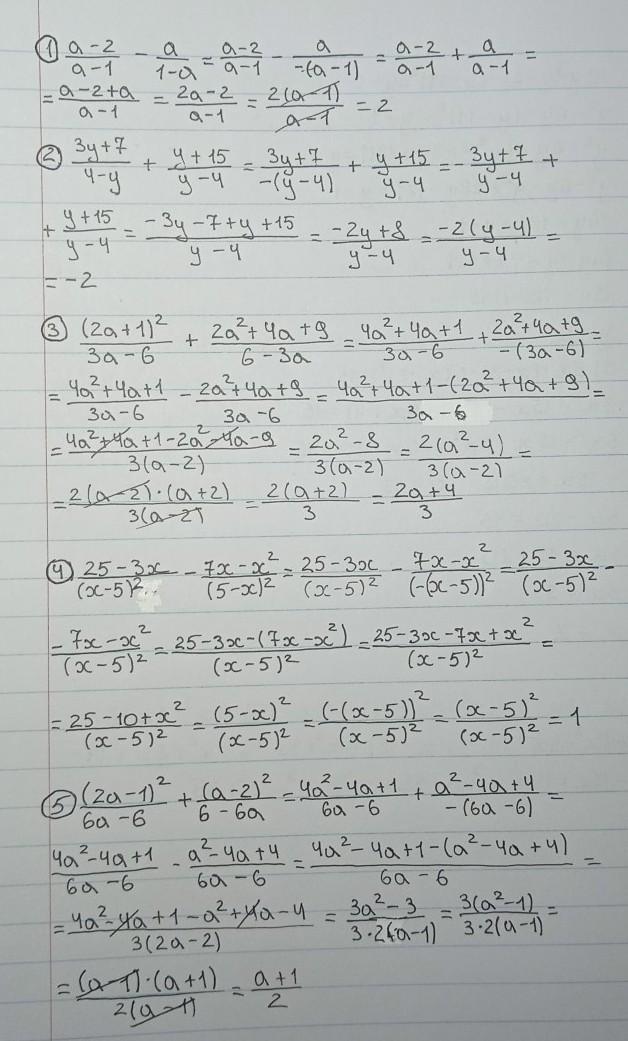 ① (a-2)/(a-1) - a/(1-a) = (a-2)/(a-1) - a/(-(a-1)) = (a-2)/(a-1) + a/(a-1) =
= (a-2+a)/(a-1) = (2a-2)/(a-1) = 2(a-1)/(a-1) = 2
② (3y+7)/(4-y) + (y+15)/(y-4) = (3y+7)/(-(y-4)) + (y+15)/(y-4) = -(3y+7)/(y-4) +
+ (y+15)/(y-4) = (-3y-7+y+15)/(y-4) = (-2y+8)/(y-4) = -2(y-4)/(y-4) =
= -2
③ (2a+1)²/(3a-6) + (2a²+4a+9)/(6-3a) = (4a²+4a+1)/(3a-6) + (2a²+4a+9)/(-(3a-6)) =
= (4a²+4a+1)/(3a-6) - (2a²+4a+9)/(3a-6) = (4a²+4a+1-(2a²+4a+9))/(3a-6) =
= (4a²+4a+1-2a²-4a-9)/(3(a-2)) = (2a²-8)/(3(a-2)) = 2(a²-4)/(3(a-2)) =
= 2(a-2)·(a+2)/(3(a-2)) = 2(a+2)/3 = (2a+4)/3
④ (25-3x)/(x-5)² - (7x-x²)/(5-x)² = (25-3x)/(x-5)² - (7x-x²)/(-(x-5))² = (25-3x)/(x-5)² -
- (7x-x²)/(x-5)² = (25-3x-(7x-x²))/(x-5)² = (25-3x-7x+x²)/(x-5)² =
= (25-10+x²)/(x-5)² = (5-x)²/(x-5)² = (-(x-5))²/(x-5)² = (x-5)²/(x-5)² = 1
⑤ (2a-1)²/(6a-6) + (a-2)²/(6-6a) = (4a²-4a+1)/(6a-6) + (a²-4a+4)/(-(6a-6)) =
(4a²-4a+1)/(6a-6) - (a²-4a+4)/(6a-6) = (4a²-4a+1-(a²-4a+4))/(6a-6) =
= (4a²-4a+1-a²+4a-4)/(3(2a-2)) = (3a²-3)/(3·2(a-1)) = 3(a²-1)/(3·2(a-1)) =
= (a-1)·(a+1)/(2(a-1)) = (a+1)/2